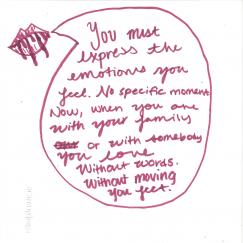 You must
express the
emotions you
feel. No specific moment
Now, when you are
with your family
or with somebody
you love
Without words.
Without moving
you feet.